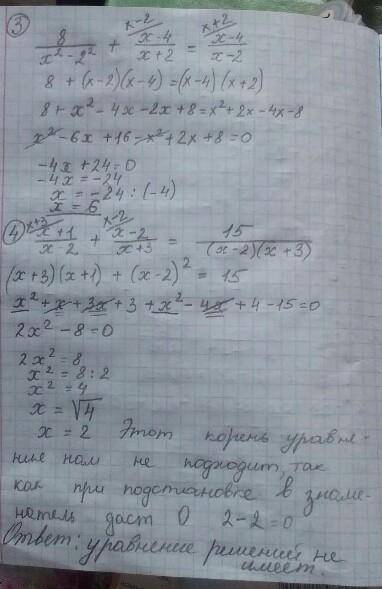 ③ x-2 x+2
8/(x²-2²) + (x-4)/(x+2) = (x-4)/(x-2)
8 + (x-2)(x-4) = (x-4)(x+2)
8 + x² - 4x - 2x + 8 = x² + 2x - 4x - 8
x² - 6x + 16 - x² + 2x + 8 = 0
-4x + 24 = 0
-4x = -24
x = -24 : (-4)
x = 6
④ x+3 x-2
(x+1)/(x-2) + (x-2)/(x+3) = 15/((x-2)(x+3))
(x+3)(x+1) + (x-2)² = 15
x² + x + 3x + 3 + x² - 4x + 4 - 15 = 0
2x² - 8 = 0
2x² = 8
x² = 8 : 2
x² = 4
x = √4
x = 2 Этот корень уравне-
ние нам не подходит, так
как при подстановке в знаме-
натель даст 0 2-2=0
Ответ: уравнение решений не
имеет.